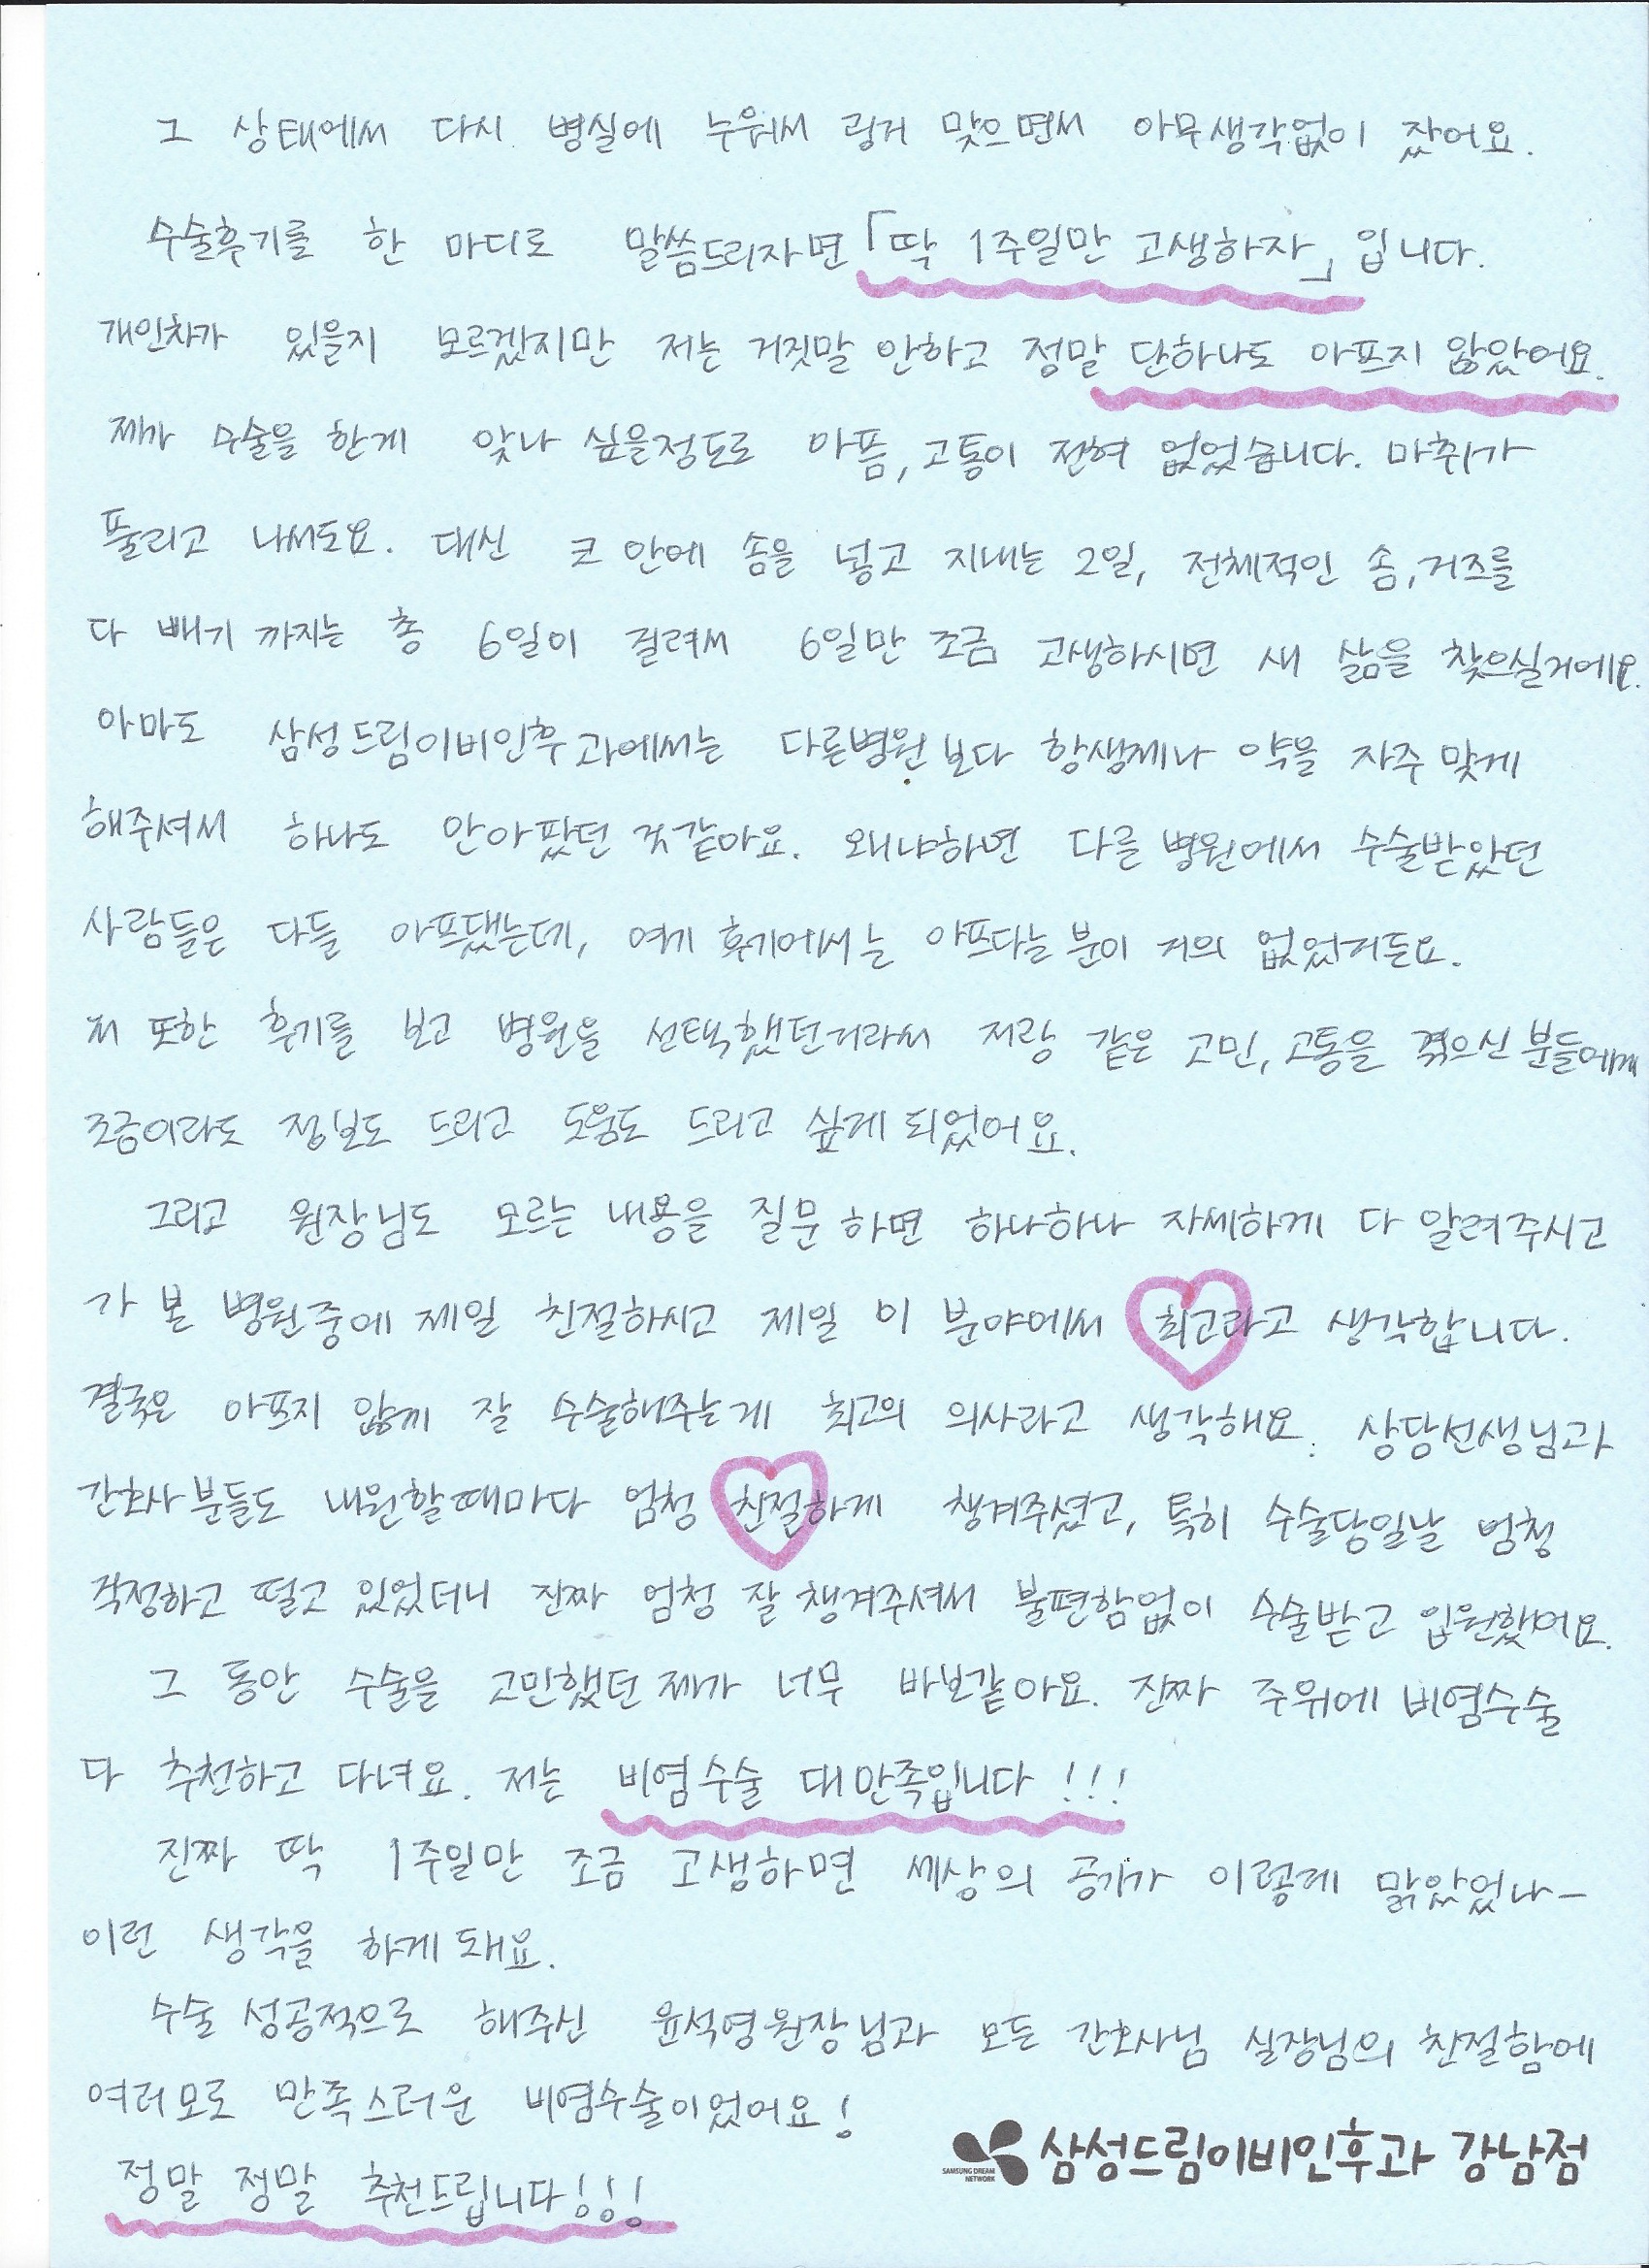 그 상태에서 다시 병실에 누워서 링거 맞으면서 아무생각없이 잤어요.
수술후기를 한 마디로 말씀드리자면 「딱 1주일만 고생하자」 입니다.
개인차가 있을지 모르겠지만 저는 거짓말 안하고 정말 단하나도 아프지 않았어요.
제가 수술을 한게 맞나 싶을정도로 아픔, 고통이 전혀 없었습니다. 마취가
풀리고 나서도요. 대신 코 안에 솜을 넣고 지내는 2일, 전체적인 솜, 거즈를
다 빼기 까지는 총 6일이 걸려서 6일만 조금 고생하시면 새 삶을 찾으실거에요.
아마도 삼성드림이비인후과에서는 다른병원보다 항생제나 약을 자주 맞게
해주셔서 하나도 안아팠던 것 같아요. 왜냐하면 다른 병원에서 수술받았던
사람들은 다들 아프댔는데, 여기 후기에서는 아프다는 분이 거의 없었거든요.
저 또한 후기를 보고 병원을 선택했던거라서 저랑 같은 고민, 고통을 겪으신 분들에게
조금이라도 정보도 드리고 도움도 드리고 싶게 되었어요.
그리고 원장님도 모르는 내용을 질문 하면 하나하나 자세하게 다 알려주시고
가 본 병원중에 제일 친절하시고 제일 이 분야에서 최고라고 생각합니다.
결국은 아프지 않게 잘 수술해주는게 최고의 의사라고 생각해요. 상담선생님과
간호사분들도 내원할때마다 엄청 친절하게 챙겨주셨고, 특히 수술당일날 엄청
걱정하고 떨고 있었더니 진짜 엄청 잘 챙겨주셔서 불편함없이 수술받고 입원했어요.
그 동안 수술을 고민했던 제가 너무 바보같아요. 진짜 주위에 비염수술
다 추천하고 다녀요. 저는 비염수술 대만족입니다!!!
진짜 딱 1주일만 조금 고생하면 세상의 공기가 이렇게 맑았었나-
이런 생각을 하게 돼요.
수술 성공적으로 해주신 윤석영원장님과 모든 간호사님 실장님의 친절함에
여러모로 만족스러운 비염수술이었어요!
정말 정말 추천드립니다!!!
SAMSUNG DREAM NETWORK 삼성드림이비인후과 강남점